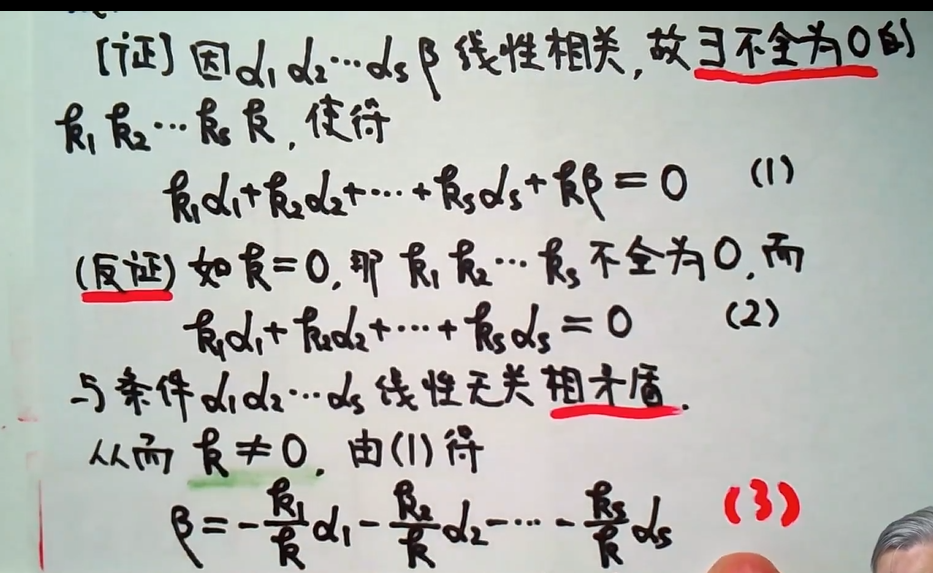 [证] 因 α₁ α₂ ⋯ αₛ β 线性相关, 故∃不全为0的
k₁ k₂ ⋯ kₛ k, 使得
k₁α₁+k₂α₂+⋯+kₛαₛ+kβ=0 (1)
(反证) 如 k=0, 那 k₁ k₂ ⋯ kₛ 不全为0, 而
k₁α₁+k₂α₂+⋯+kₛαₛ=0 (2)
与条件 α₁α₂⋯αₛ 线性无关相矛盾.
从而 k≠0, 由(1)得
β=-k₁/k α₁-k₂/k α₂-⋯-kₛ/k αₛ (3)